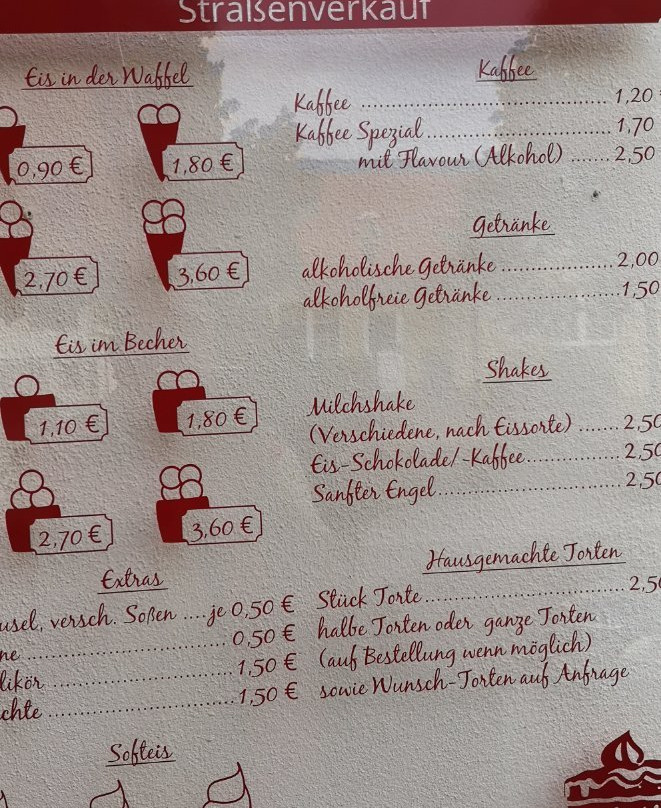 Straßenverkauf
Eis in der Waffel
0,90 €
1,80 €
2,70 €
3,60 €
Eis im Becher
1,10 €
1,80 €
2,70 €
3,60 €
Extras
usel, versch. Soßen ....je 0,50 €
ne ........................ 0,50 €
likör ........................ 1,50 €
chte ........................ 1,50 €
Softeis
Kaffee
Kaffee ........................ 1,20
Kaffee Spezial ........................ 1,70
mit Flavour (Alkohol) ....... 2,50
Getränke
alkoholische Getränke ................. 2,00
alkoholfreie Getränke ................... 1,50
Shakes
Milchshake
(Verschiedene, nach Eissorte) ....... 2,50
Eis-Schokolade/-Kaffee ................ 2,50
Sanfter Engel ........................ 2,50
Hausgemachte Torten
Stück Torte ........................ 2,50
halbe Torten oder ganze Torten
(auf Bestellung wenn möglich)
sowie Wunsch-Torten auf Anfrage